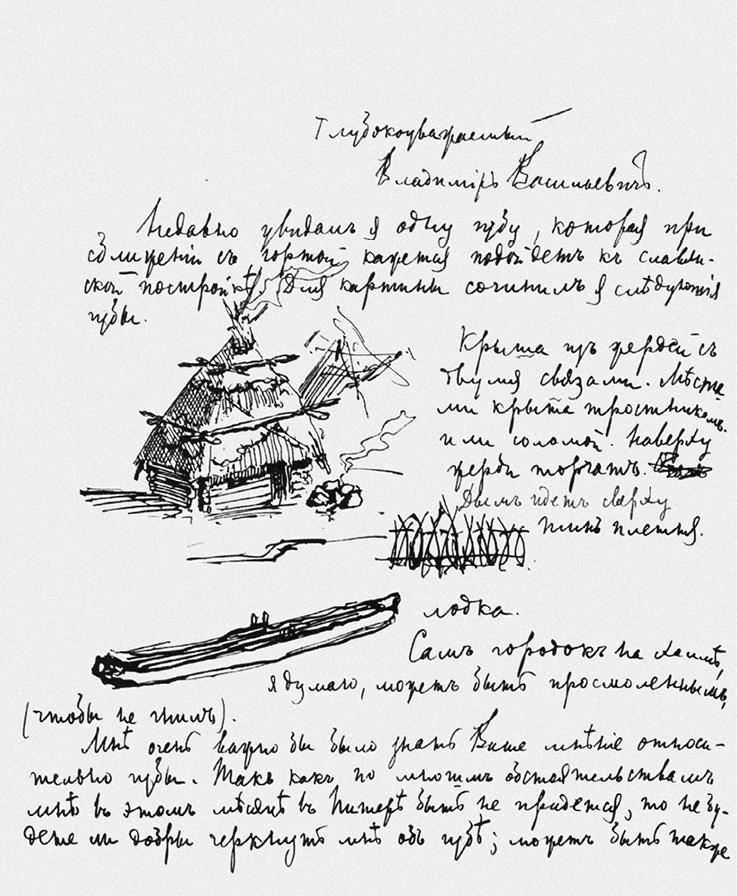 Глубокоуважаемый
Владимiръ Васильевичъ.
Недавно увидалъ я одну избу, которая при
сближенiи съ юртой кажется подойдетъ къ славян-
ской постройкѣ. Для картины сочинилъ я слѣдующiя
избы.
Крыша изъ жердей съ
двумя связами. Мѣста
ми крыта тростникомъ
или соломой. Наверху
жерди торчатъ.
Дымъ идетъ сверху
типъ плетня.
лодка.
Самъ городокъ на холмѣ,
я думаю, можетъ быть просмоленнымъ,
(чтобы не гнилъ).
Мнѣ очень важно бы было знать Ваше мнѣнiе относи-
тельно избы. Такъ какъ по многимъ обстоятельствамъ
мнѣ въ этомъ мѣсяцѣ въ Питерѣ быть не придется, то не бу-
дете ли добры черкнуть мнѣ объ избѣ; можетъ быть также